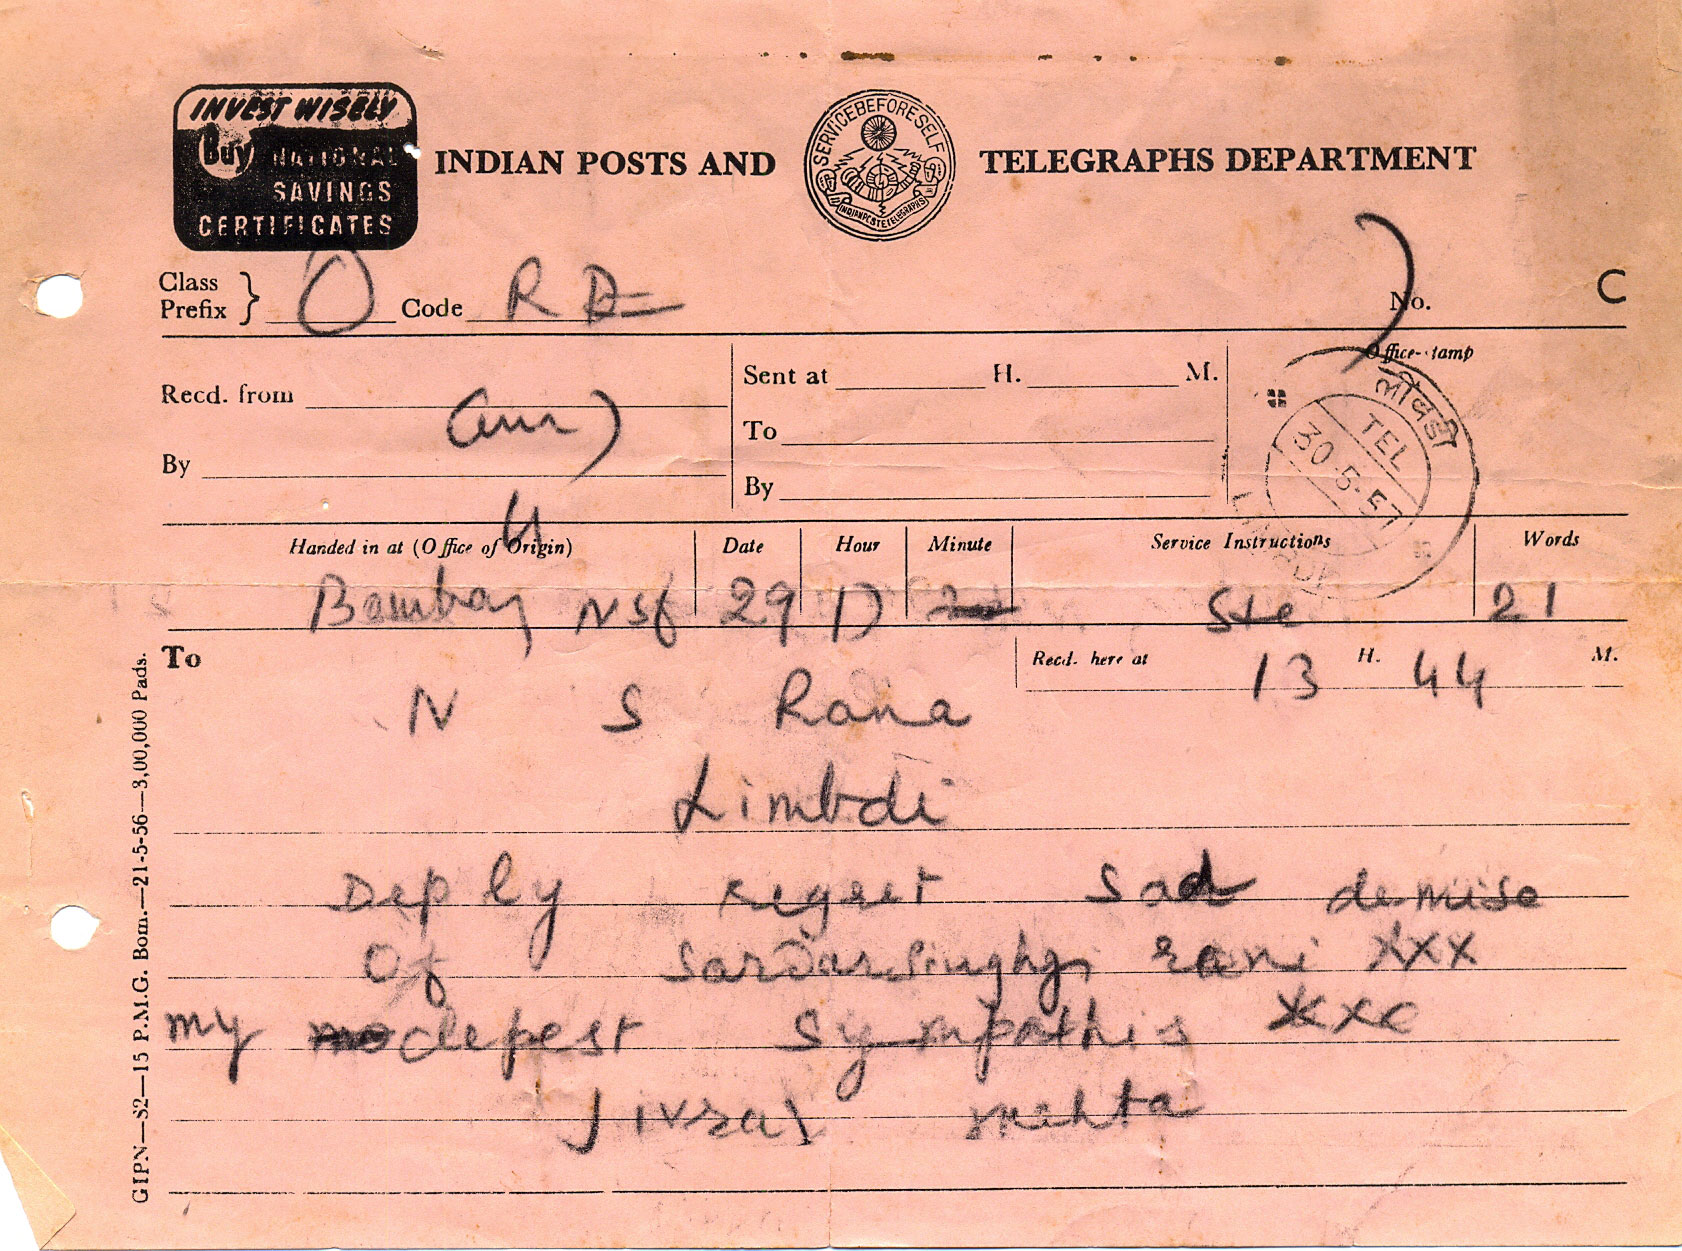 INVEST WISELY
Buy NATIONAL
SAVINGS
CERTIFICATES
INDIAN POSTS AND TELEGRAPHS DEPARTMENT
SERVICE BEFORE SELF
INDIAN POSTS & TELEGRAPHS
Class
Prefix } O Code R
No. C
Office-stamp
Recd. from
By
Sent at H. M.
To
By
लीबडी
TEL
30-5-57
Handed in at (Office of Origin) Date Hour Minute Service Instructions Words
Bombay 29 Ste 21
To
Recd. here at 13 H. 44 M.
N S Rana
Limbdi
Deply regret Sad demise
Of Sardarsinghji rana XXX
my depest Sympathis XXX
Jivraj mehta
GIPN—S2—15 P.M.G. Bom.—21-5-56—3,00,000 Pads.